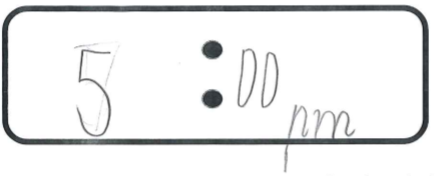 5 : 00 pm